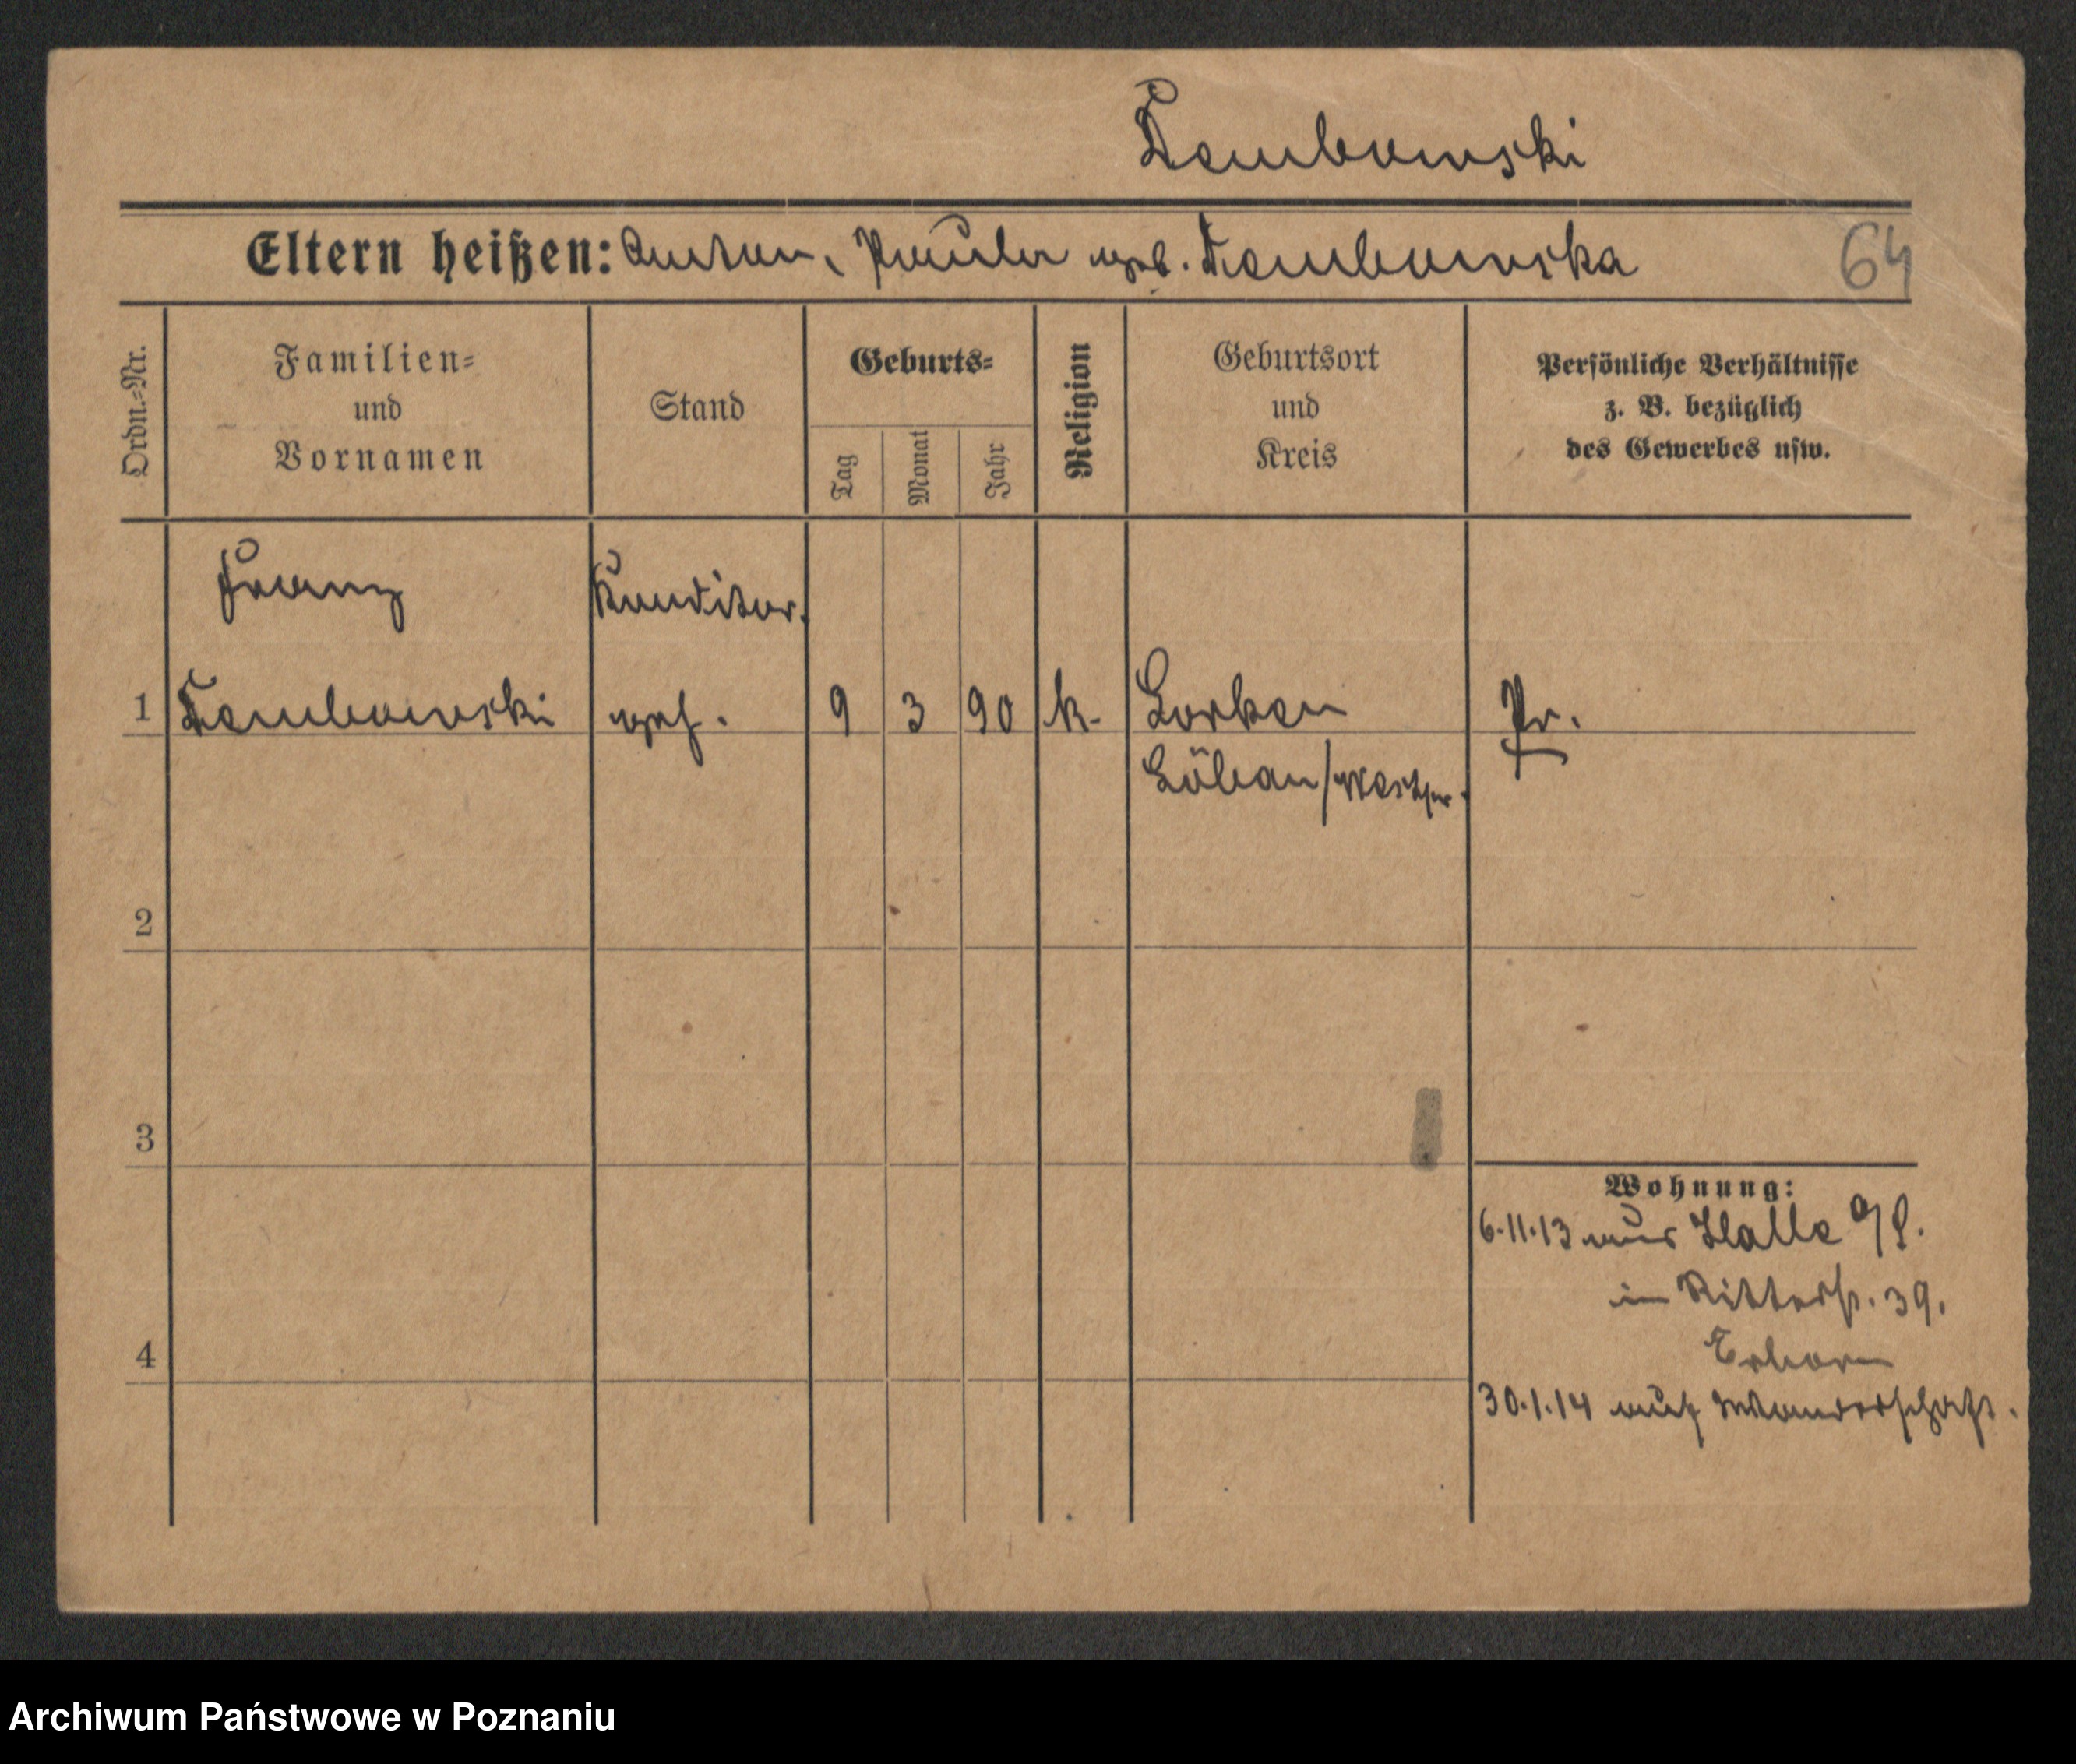 Dembowski
Eltern heißen: Anton, Paula geb. Dembowska 64
Ordn.=Nr.
Familien=
und
Vornamen
Stand
Geburts=
Tag
Monat
Jahr
Religion
Geburtsort
und
Kreis
Persönliche Verhältnisse
z. B. bezüglich
des Gewerbes usw.
Franz Konditor.
1 Dembowski 9 3 90 k. Lorken Pr.
Löbau/Westpr.
2
3
Wohnung:
6.11.13 aus Halle a/S.
in Ritterstr. 39.
4
30.1.14 auf Wanderschaft.
Archiwum Państwowe w Poznaniu